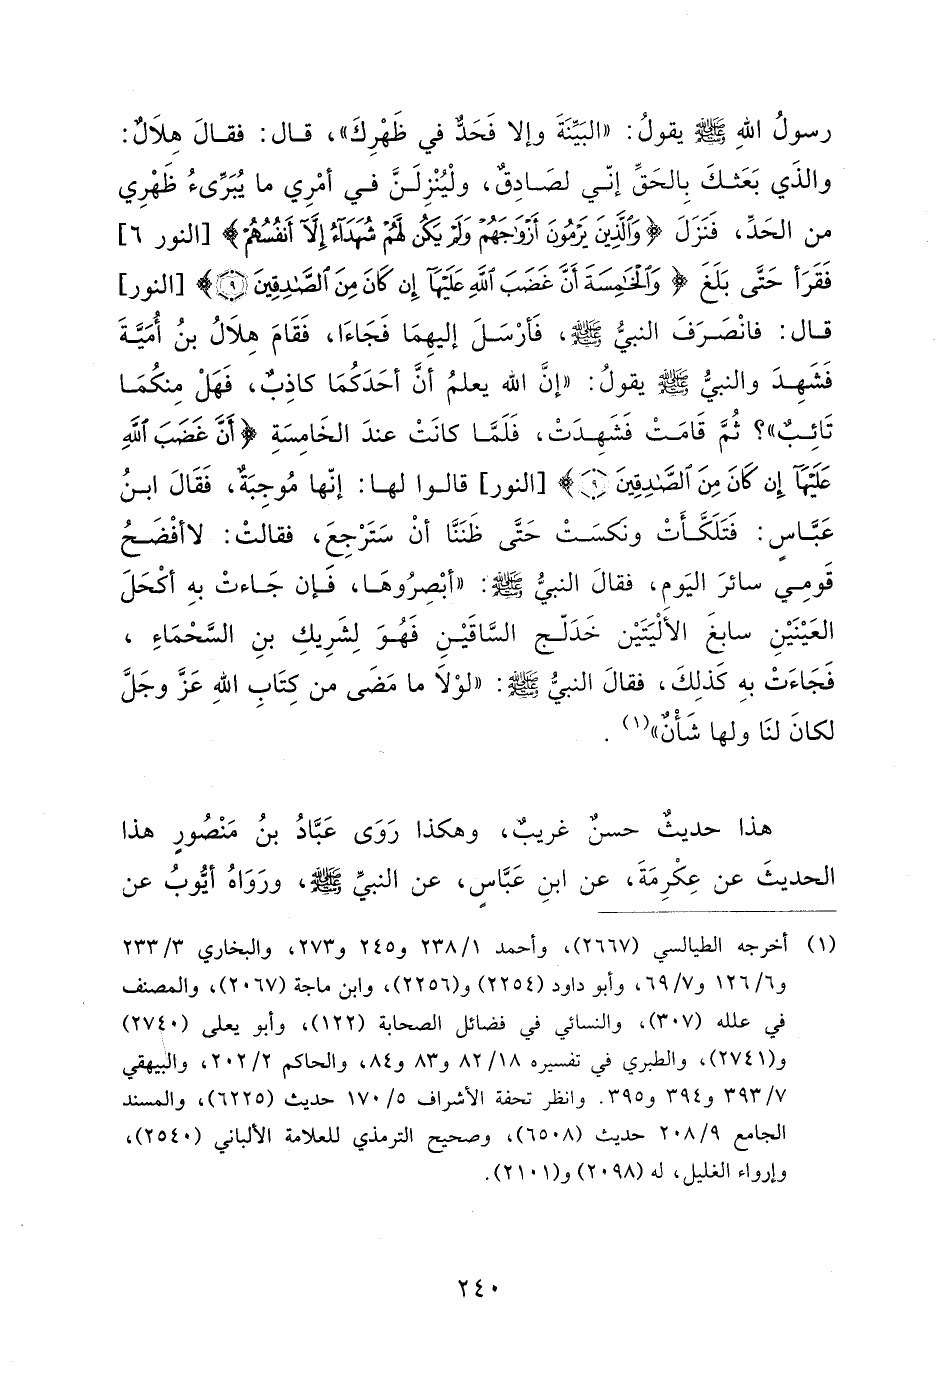 رسولُ اللهِ ﷺ يقولُ: «البَيِّنَةَ وإلا فَحَدٌّ في ظَهْرِكَ»، قال: فقالَ هِلَالٌ:
والذَي بَعَثَكَ بِالحَقِّ إنّي لصَادِقٌ، ولْيُنْزِلَنَّ في أمْرِي ما يُبَرِّىءُ ظَهْرِي
من الحَدِّ، فَنَزَلَ ﴿ وَٱلَّذِينَ يَرْمُونَ أَزْوَٰجَهُمْ وَلَمْ يَكُن لَّهُمْ شُهَدَآءُ إِلَّآ أَنفُسُهُمْ ﴾ [النور ٦]
فَقَرَأ حَتَّى بَلَغَ ﴿ وَٱلْخَٰمِسَةَ أَنَّ غَضَبَ ٱللَّهِ عَلَيْهَآ إِن كَانَ مِنَ ٱلصَّٰدِقِينَ ٩ ﴾ [النور]
قال: فانْصَرَفَ النبيُّ ﷺ، فَأرْسَلَ إليهِمَا فَجَاءَا، فَقَامَ هِلَالُ بنُ أُمَيَّةَ
فَشَهِدَ والنبيُّ ﷺ يقولُ: «إنَّ الله يعلمُ أنَّ أحَدَكُمَا كاذِبٌ، فَهَلْ منكُمَا
تَائِبٌ»؟ ثُمَّ قَامَتْ فَشَهِدَتْ، فَلَمَّا كانَتْ عندَ الخَامِسَةِ ﴿ أَنَّ غَضَبَ ٱللَّهِ
عَلَيْهَآ إِن كَانَ مِنَ ٱلصَّٰدِقِينَ ٩ ﴾ [النور] قالوا لها: إنّها مُوجِبَةٌ، فَقَالَ ابنُ
عَبَّاسٍ: فَتَلَكَّأَتْ ونَكَسَتْ حَتَّى ظَنَنَّا أنْ سَتَرْجِعَ، فقالتْ: لاأفْضَحُ
قَومِي سائرَ اليَومِ، فقالَ النبيُّ ﷺ: «أبْصِرُوهَا، فَإن جَاءتْ بِهِ أكْحَلَ
العَيْنَيْنِ سابغَ الألْيَتَيْنِ خَدَلّج السَّاقَيْنِ فَهُوَ لِشَرِيكِ بنِ السَّحْمَاءِ ،
فَجَاءَتْ بِهِ كَذلِكَ، فقالَ النبيُّ ﷺ: «لوْلاَ ما مَضَى من كِتَابِ اللهِ عَزَّ وجَلَّ
لكانَ لنَا ولها شَأْنٌ»(١) .
هذا حديثٌ حسنٌ غريبٌ، وهكذا رَوَى عَبَّادُ بنُ مَنْصُورٍ هذا
الحديثَ عن عِكْرِمَةَ، عن ابنِ عَبَّاسٍ، عن النبيِّ ﷺ، ورَوَاهُ أيُّوبُ عن
(١) أخرجه الطيالسي (٢٦٦٧)، وأحمد ٢٣٨/١ و٢٤٥ و٢٧٣، والبخاري ٢٣٣/٣
و١٢٦/٦ و٦٩/٧، وأبو داود (٢٢٥٤) و(٢٢٥٦)، وابن ماجة (٢٠٦٧)، والمصنف
في علله (٣٠٧)، والنسائي في فضائل الصحابة (١٢٢)، وأبو يعلى (٢٧٤٠)
و(٢٧٤١)، والطبري في تفسيره ٨٢/١٨ و٨٣ و٨٤، والحاكم ٢٠٢/٢، والبيهقي
٣٩٣/٧ و٣٩٤ و٣٩٥. وانظر تحفة الأشراف ١٧٠/٥ حديث (٦٢٢٥)، والمسند
الجامع ٢٠٨/٩ حديث (٦٥٠٨)، وصحيح الترمذي للعلامة الألباني (٢٥٤٠)،
وإرواء الغليل، له (٢٠٩٨) و(٢١٠١).
٢٤٠